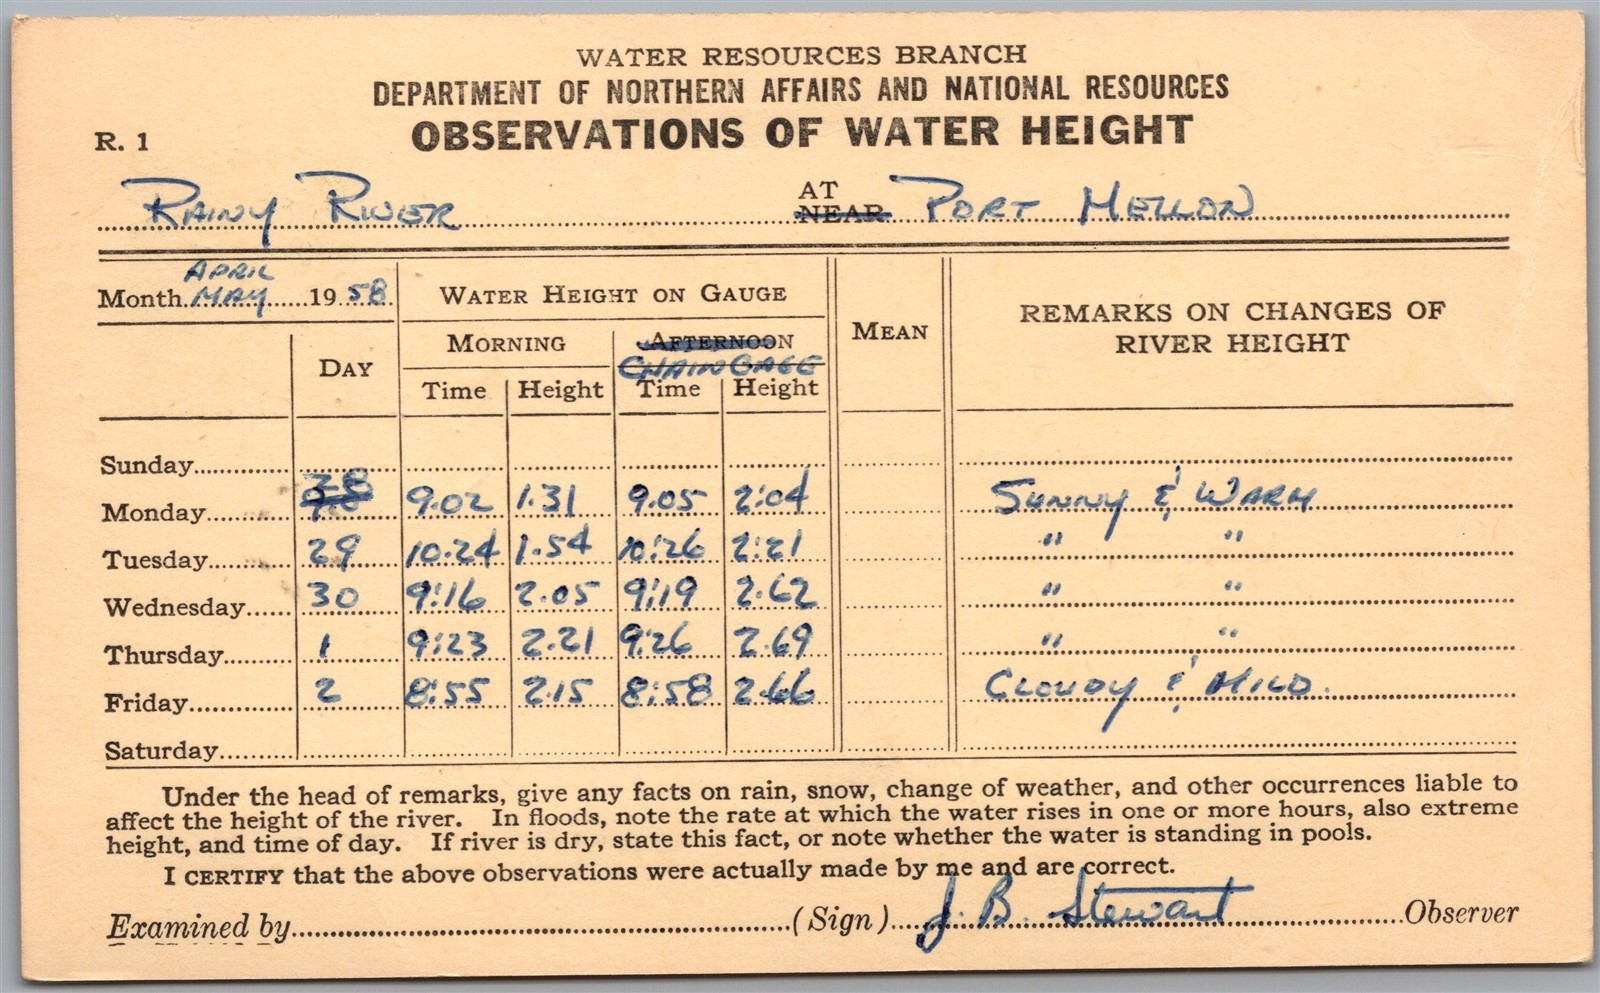 WATER RESOURCES BRANCH
DEPARTMENT OF NORTHERN AFFAIRS AND NATIONAL RESOURCES
R. 1 OBSERVATIONS OF WATER HEIGHT
RAINY RIVER AT NEAR PORT MELLON
APRIL
Month MAY 1958 WATER HEIGHT ON GAUGE MEAN REMARKS ON CHANGES OF RIVER HEIGHT
DAY MORNING AFTERNOON
CHAIN GAGE
Time Height Time Height
Sunday
Monday 28 9.02 1.31 9.05 2:04 SUNNY & WARM
Tuesday 29 10.24 1.54 10:26 2:21 " "
Wednesday 30 9:16 2.05 9:19 2.62 " "
Thursday 1 9:23 2.21 9:26 2.69 " "
Friday 2 8:55 2.15 8:58 2.66 CLOUDY & MILD.
Saturday
Under the head of remarks, give any facts on rain, snow, change of weather, and other occurrences liable to
affect the height of the river. In floods, note the rate at which the water rises in one or more hours, also extreme
height, and time of day. If river is dry, state this fact, or note whether the water is standing in pools.
I CERTIFY that the above observations were actually made by me and are correct.
Examined by (Sign) J. B. Stewart Observer